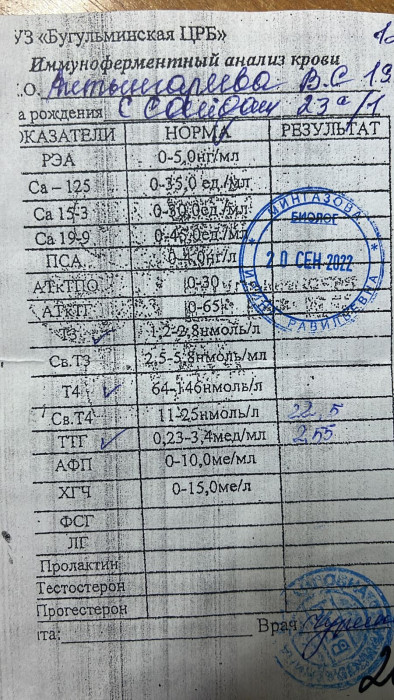 УЗ «Бугульминская ЦРБ»
Иммуноферментный анализ крови
.О. В.С 19
а рождения 23а/1
ОКАЗАТЕЛИ НОРМА РЕЗУЛЬТАТ
РЭА 0-5,0нг/мл
Са – 125 0-35,0 ед./мл
Са 15-3 0-30,0ед./мл
Са 19-9 ед./мл
ПСА 0-4,0нг/л
АТкТПО 0-30
АТкТГ 0-65
Т3 1,2-2,8нмоль/л
Св.Т3 2,5-5,8нмоль/мл
Т4 64-146нмоль/л
Св.Т4 11-25нмоль/л 22,5
ТТГ 0,23-3,4мед/мл 2,55
АФП 0-10,0ме/мл
ХГЧ 0-15,0ме/л
ФСГ
ЛГ
Пролактин
Тестостерон
Прогестерон
та: Врач
МИНГАЗОВА
БИОЛОГ
20 СЕН 2022
РАВИЛЬЕВНА